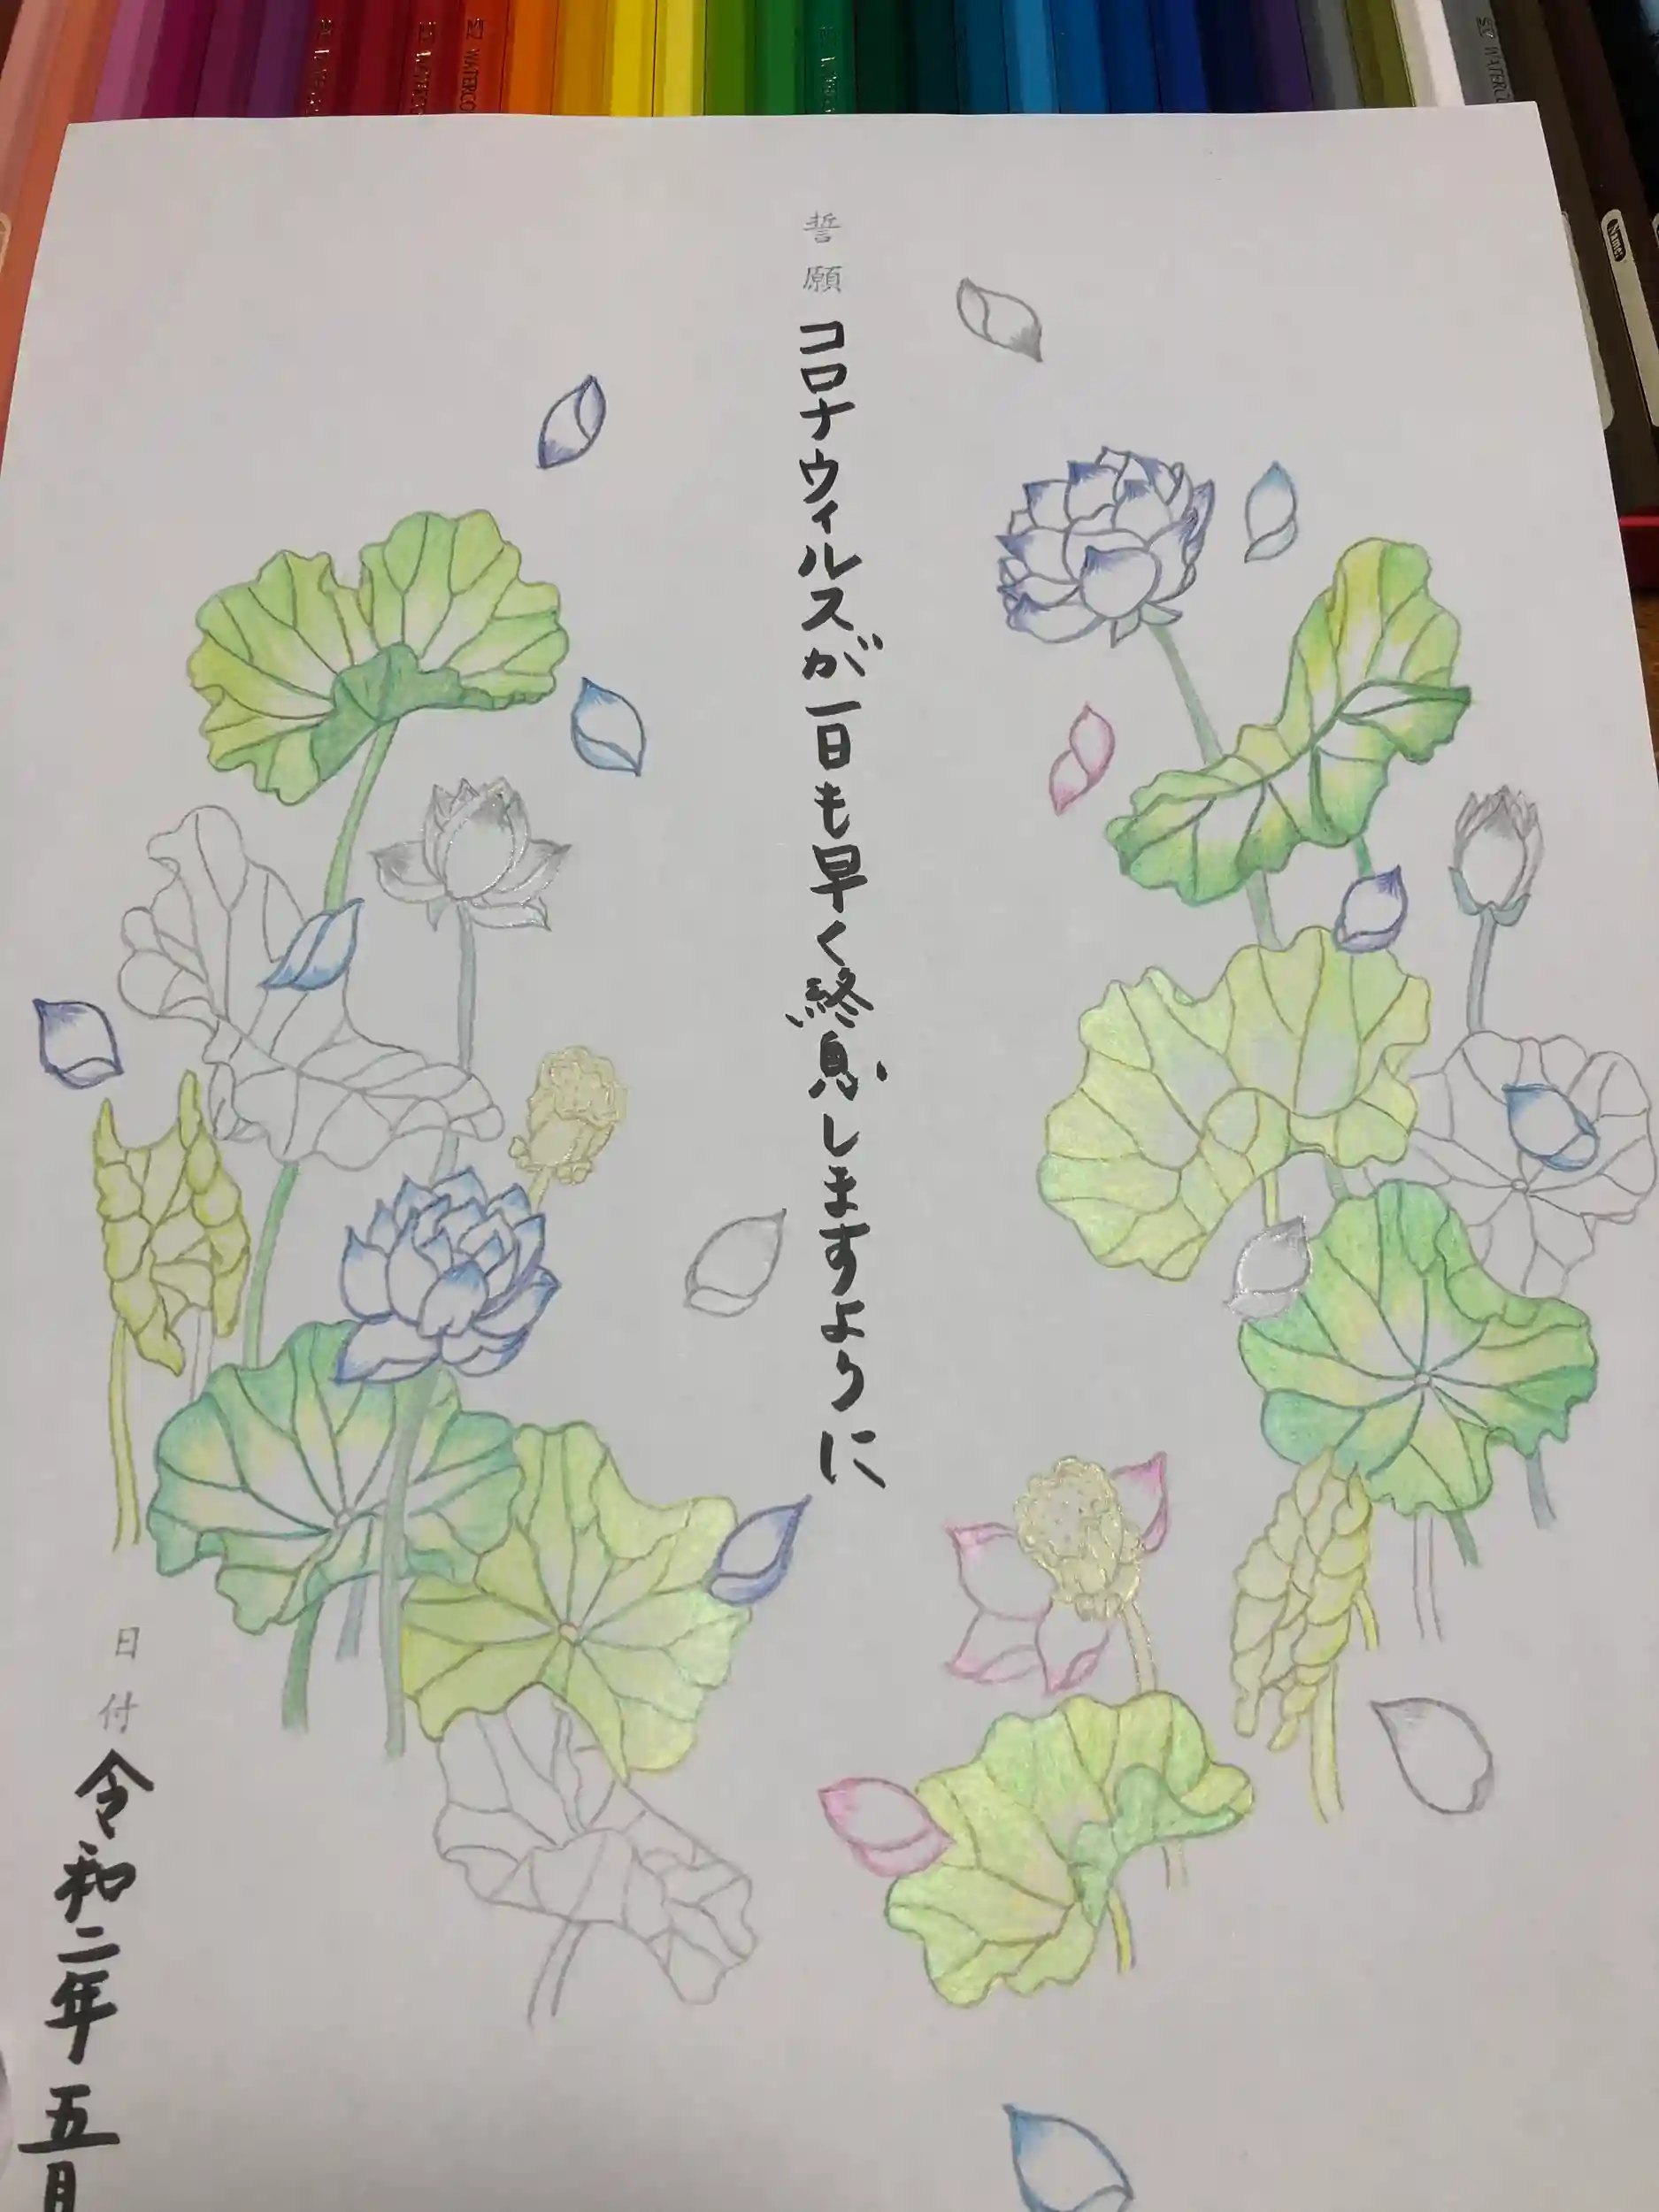 WATERCO
WATERCO
Name:
誓願 コロナウィルスが一日も早く終息しますように
日付 令和二年 五月